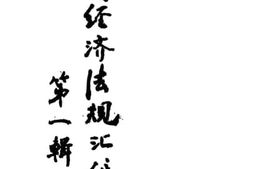 经济法规汇
第一辑